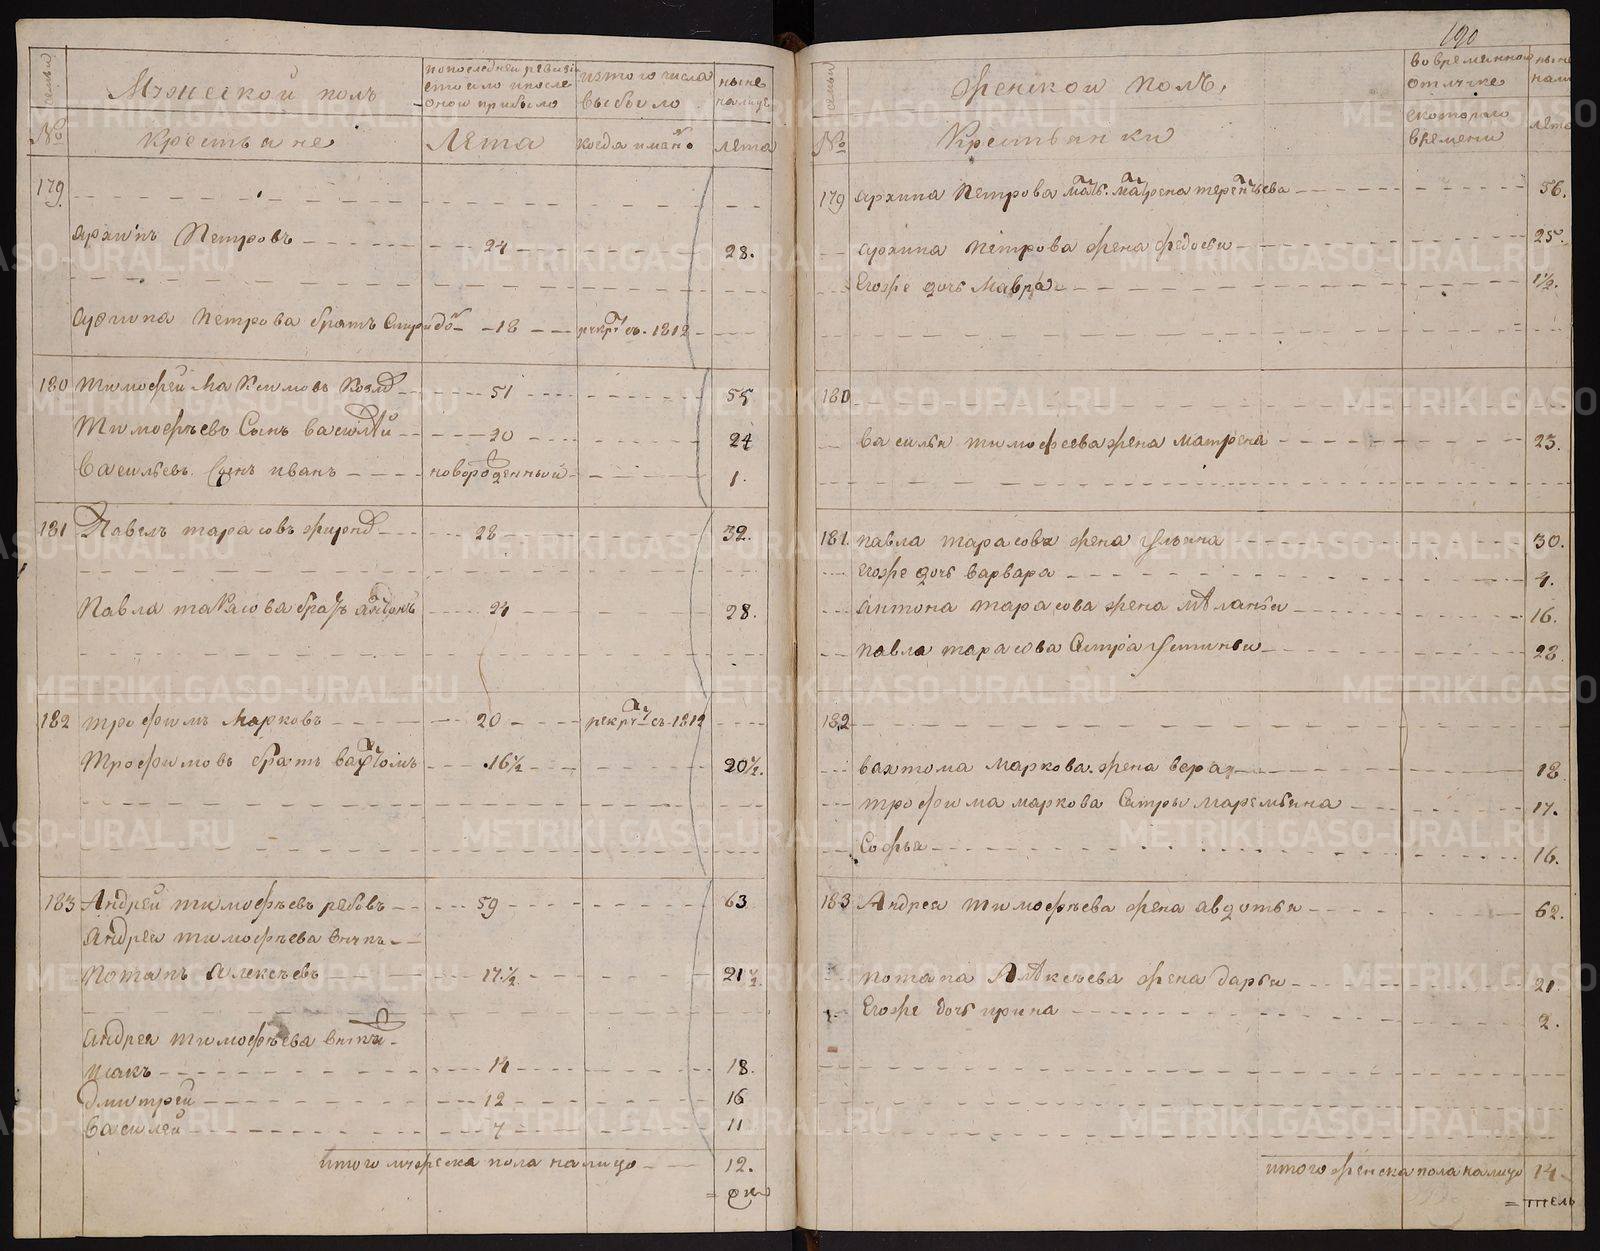 Мужескои полъ
семьи
№
Крестьяне
попоследней ревизіи
состояло ипосле
оной прибыло
Лета
изтого числа
выбыло
когда имянно
ныне
налицо
лета
179
архипъ Петровъ 24 28.
архипа Петрова братъ Спиридонъ 18 рекрут съ. 1812
180 тимофей Максимовъ 51 55
Тимофѣевъ Сынъ василей 20 24
васильевъ Сынъ иванъ новорожденный 1.
181 Павелъ тарасовъ 28 32.
Павла тарасова братъ антонъ 24 28.
182 трофимъ Марковъ 20 рекрут съ 1812
Трофимовъ братъ 16½ 20½.
183 Андрей тимофѣевъ рябовъ 59 63
андрея тимофѣева внукъ
Потапъ алексѣевъ 17½ 21½
андрея тимофѣева внуки
исакъ 14 18.
дмитрей 12 16
василей 7 11
итого мужеска пола налицо 12.
190
Женскои полъ,
семьи
№
Крестьянки
вовременной
отлучке
скотораго
времени
ныне
нали
лета
179 архипа Петрова мать. матрена терентьева 56.
архипа петрова жена федосья 25.
Егоже дочь Мавра 1½.
180
василья тимофеева жена матрена 23.
181. павла тарасова жена ульяна 30.
егоже дочь варвара 4.
антона тарасова жена меланья 16.
павла тарасова Сестра устинья 28
182
маркова. жена вера 18
трофима маркова Сестры маремьяна 17.
Софья 16.
183 Андрея тимофѣева жена авдотья 62.
потапа Алексѣева жена дарья 21.
Егоже дочь ирина 2.
итого женска пола налицо 14
METRIKI.GASO-URAL.RU